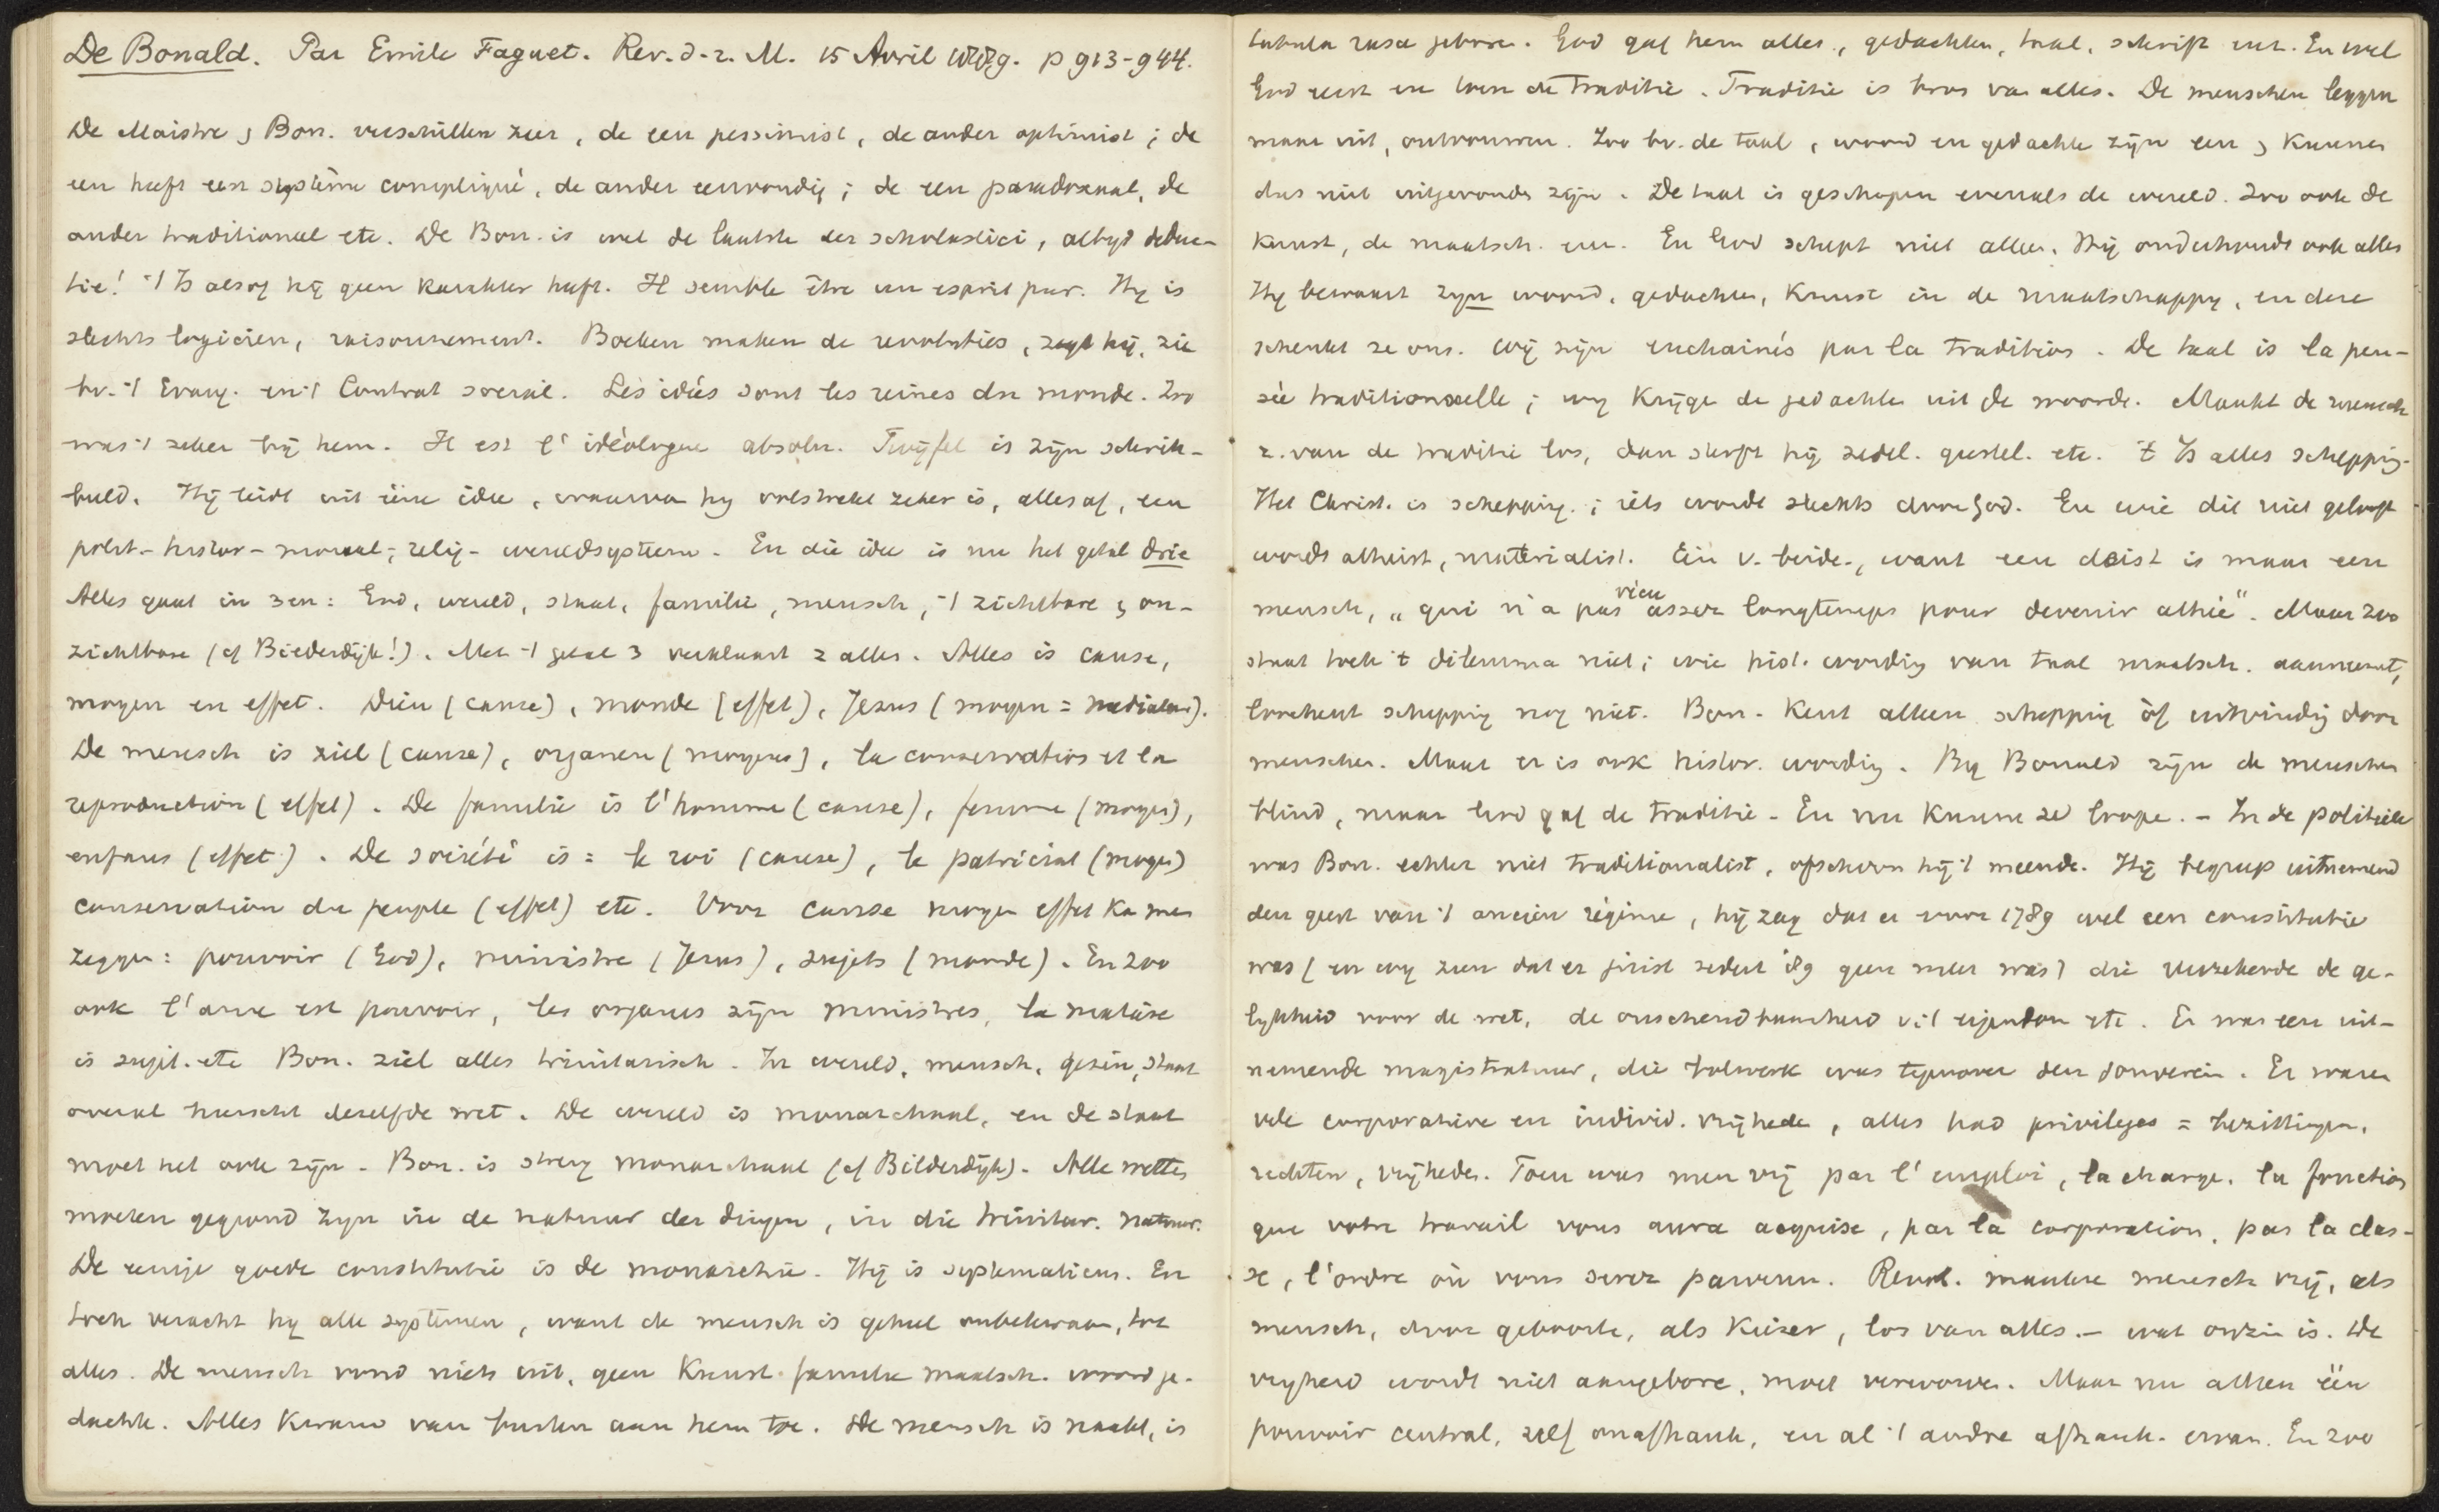 De Bonald. Par Emile Faguet. Rev. d. 2. M. 15 Avril 1889. p 913-944.
De Maistre & Bon. verschillen zeer, de een pessimist, de ander optimist; de
een heeft een système compliqué, de ander eenvoudig; de een paradoxaal, de
ander traditioneel etc. De Bon. is wel de laatste der scholastici, altyd deduc-
tie! 't Is alsof hij geen karakter heeft. Il semble être un esprit pur. Hij is
slechts logicien, raisonnement. Boeken maken de revoluties, zegt hij, zie
bv. 't Evang. en 't Contrat social. Les idées sont les reines du monde. Zoo
was 't zeker bij hem. Il est l' idéologue absolu. Twijfel is zijn schrik-
beeld. Hij leidt uit eene idee, waarvan hy volstrekt zeker is, alles af, een
polit.- histor- moraal-, relig- wereldsysteem. En die idee is nu het getal drie
Alles gaat in 3en: God, wereld, staat, familie, mensch, 't zichtbare & on-
zichtbare (cf Bilderdijk!). Met 't getal 3 verklaart z alles. Alles is cause,
moyen en effet. Dieu (cause), monde (effet), Jezus (moyen = mediateur).
De mensch is ziel (cause), organen (moyens), la conservation et la
reproduction (effet). De familie is l'homme (cause), femme (moyen),
enfans (effet). De société is = le roi (cause), le patriciat (moyen)
conservation du peuple (effet) etc. Voor cause moyen effet ka men
zeggen: pouvoir (God), ministre (Jezus), sujets (monde). En zoo
ook l'ame est pouvoir, les organes zijn ministres, la matière
is sujet. etc Bon. ziet alles trinitarisch. In wereld, mensch, gezin, staat
overal heerscht dezelfde wet. De wereld is monarchaal, en de staat
moet het ook zijn. Bon. is streng monarchaal (cf Bilderdijk). Alle wetten
moeten gegrond zyn in de natuur der dingen, in die trinitar. natuur.
De eenige goede constitutie is de monarchie. Hij is systematicus. En
toch veracht hy alle systemen, want de mensch is geheel onbekwaam, tot
alles. De mensch vond niets uit, geen kunst familie maatsch. woord ge-
dachte. Alles kwam van buiten aan hem toe. De mensch is naakt, is
tabula rasa geboren. God gaf hem alles, gedachten, taal, schrift enz. En wel
God eerst en toen de traditie. Traditie is bron van alles. De menschen leggen
maar uit, ontvouwen. Zoo bv. de taal, woord en gedachte zijn een & kunnen
dus niet uitgevonden zijn. De taal is geschapen evenals de wereld. Zoo ook de
kunst, de maatsch. enz. En God schept niet alleen, Hij onderhoudt ook alles
Hy bewaart zyn woord, gedachten, kunst in de maatschappy, en deze
schenkt ze ons. Wij zijn enchainés par la tradition. De taal is la pen-
sée traditionnelle; wy krijgen de gedachte uit de woorden. Maakt de mensch
z. van de traditie los, dan sterft hij zedel. geestel. etc. 't Is alles schepping.
Het Christ. is schepping; iets wordt slechts door God. En wie dit niet gelooft
wordt atheist, materialist. Een v. beide, want een deist is maar een
mensch, „qui n'a pas vécu assez longtemps pour devenir athée". Maar zoo
staat toch 't dilemma niet; wie hist. wording van taal maatsch. aanneemt,
loochent schepping nog niet. Bon. kent alleen schepping òf uitvinding door
menschen. Maar er is ook histor. wording. By Bonald zijn de menschen
blind, maar God gaf de traditie. En nu kunnen ze loopen. - In de politiek
was Bon. echter niet traditionalist, ofschoon hij 't meende. Hij begreep uitnemend
den geest van 't ancien régime, hij zag dat er voor 1789 wel een constitutie
was (en wy zien dat er juist sedert '89 geen meer was) die verzekerde de ge-
lykheid voor de wet, de onschendbaarheid v. 't eigendom etc. Er was een uit-
nemende magistratuur, die bolwerk was tegenover den souverein. Er waren
vele corporatieve en individ. vrijheden, alles had privileges = bezittingen,
rechten, vrijheden. Toen was men vrij par l'emploi, la charge, la fonction
que votre travail vous aura acquise, par la corporation, par la clas-
se, l'ordre où vous serez parvenu. Revol. maakte mensch vrij, als
mensch, door geboorte, als kiezer, los van alles. - wat onzin is. De
vryheid wordt niet aangeboren, moet verworven. Maar nu alleen één
pouvoir central, zelf onafhank, en al 't andre afhank. ervan. En zoo